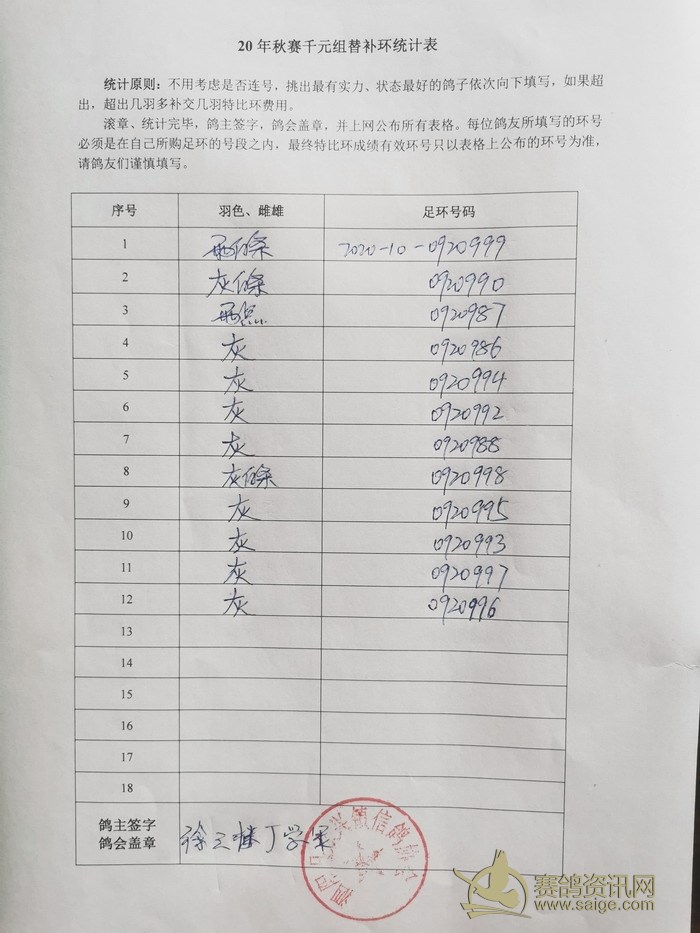 20 年秋赛千元组替补环统计表
统计原则：不用考虑是否连号，挑出最有实力、状态最好的鸽子依次向下填写，如果超
出，超出几羽多补交几羽特比环费用。
滚章、统计完毕，鸽主签字，鸽会盖章，并上网公布所有表格。每位鸽友所填写的环号
必须是在自己所购足环的号段之内，最终特比环成绩有效环号只以表格上公布的环号为准，
请鸽友们谨慎填写。
序号 羽色、雌雄 足环号码
1 2020-10-0920999
2 灰條 0920990
3 0920987
4 灰 0920986
5 灰 0920994
6 灰 0920992
7 灰 0920988
8 灰條 0920998
9 灰 0920995
10 灰 0920993
11 灰 0920997
12 灰 0920996
13
14
15
16
17
18
鸽主签字
鸽会盖章
兴镇信鸽
赛鸽资讯网
www.saige.com